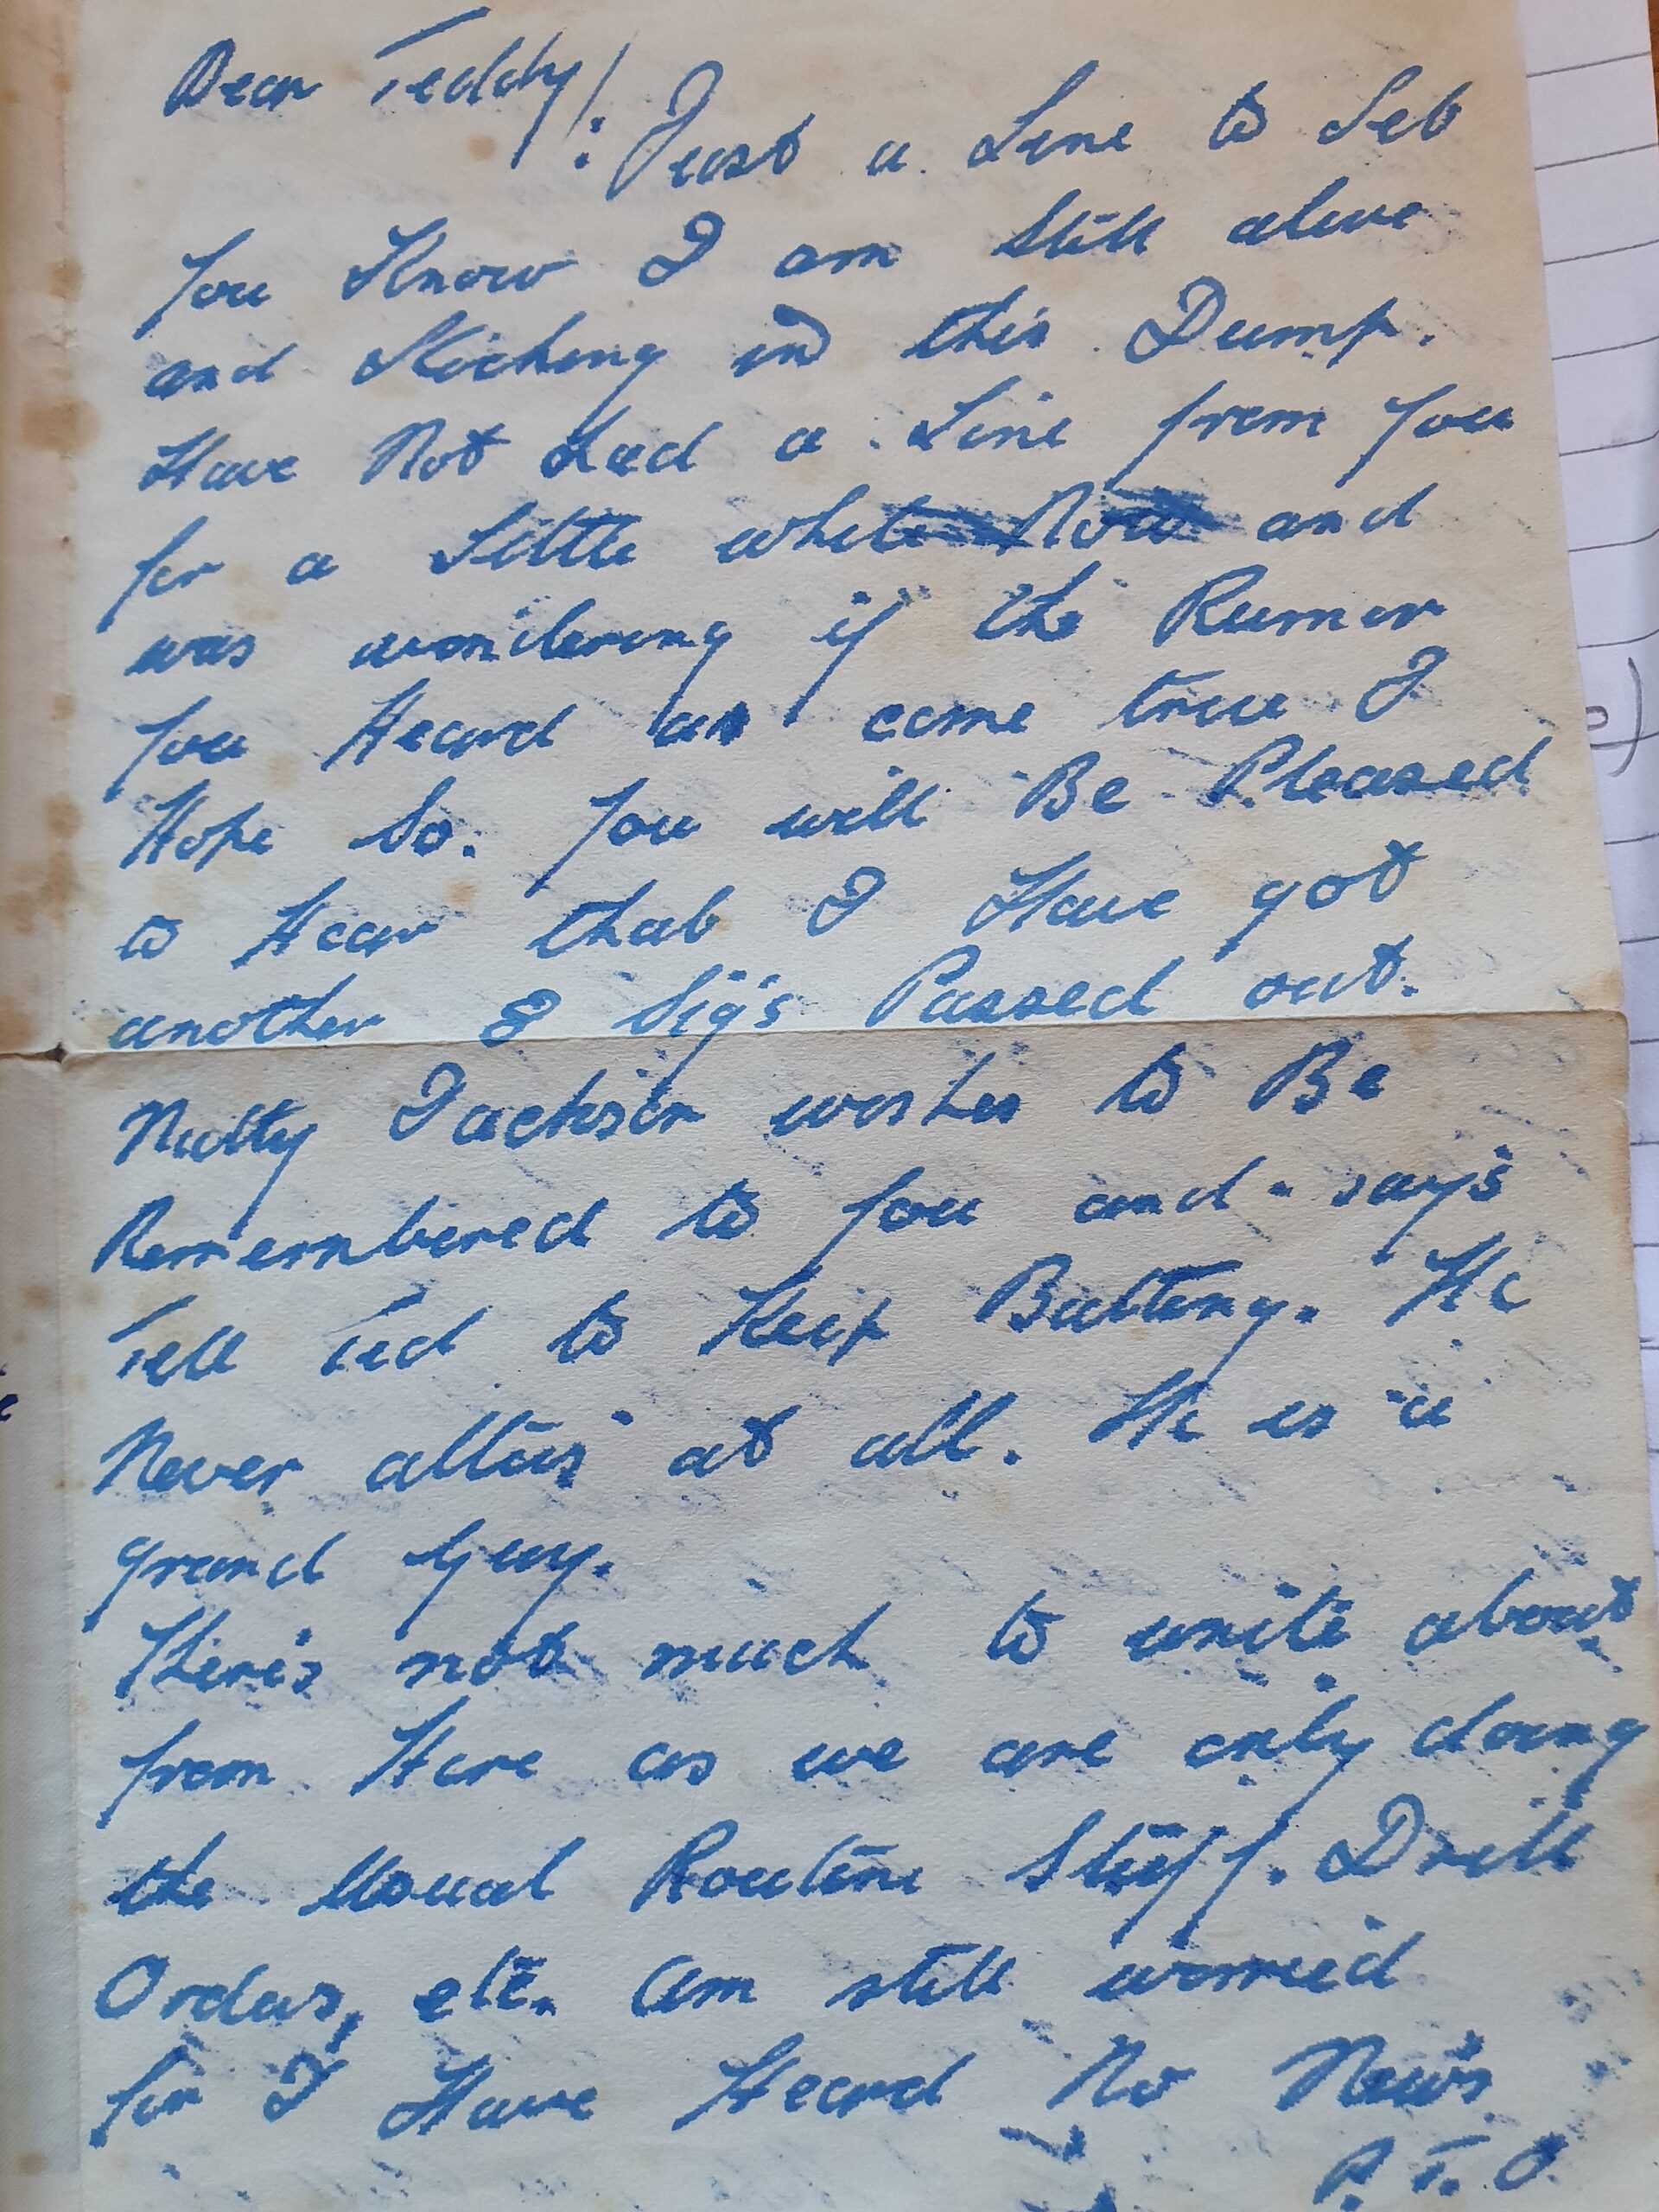 Dear Teddy/:
Just a Line to Let
you Know I am still alive
and Sticking in this Dump.
Have Not Had a Line from you
for a Little while Now and
was wondering if the Rumor
you Heard as come true I
Hope So. you will Be Pleased
to Hear that I Have got
another 8 Sig's Passed out.
Nutty Jackson wishes to Be
Remembered to you and says
Tell Ted to Keep Batting. He
Never alters at all. He is a
grand Guy.
There's not much to write about
from Here as we are only doing
the Usual Routine Stuff. Drill
Orders, etc. am still worried
for I Have Heard No News
P.T.O.